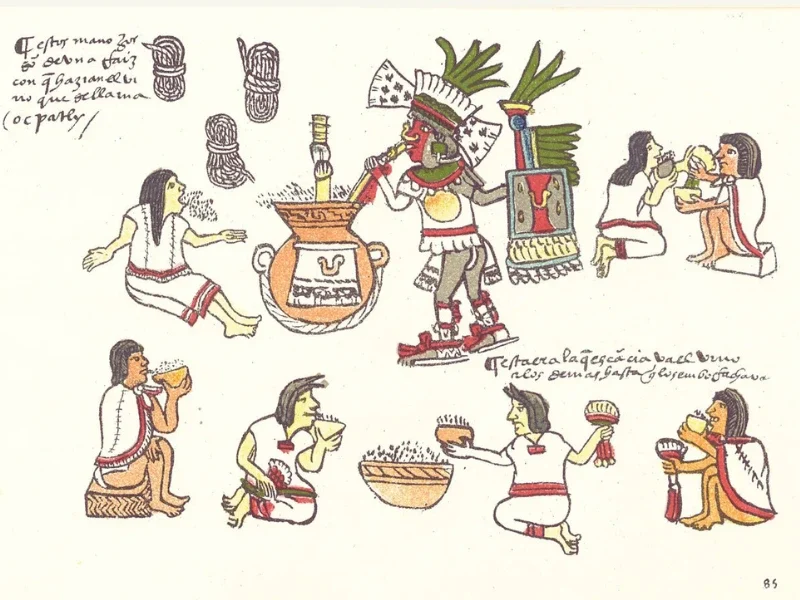 estos mano Jos
sõ de vna Raiz
con q̃ hazian el vi
no que se llama
ocpatly /
esta era la q̃ escãciava el vino
a los demas hasta q̃ los enboRachava
85